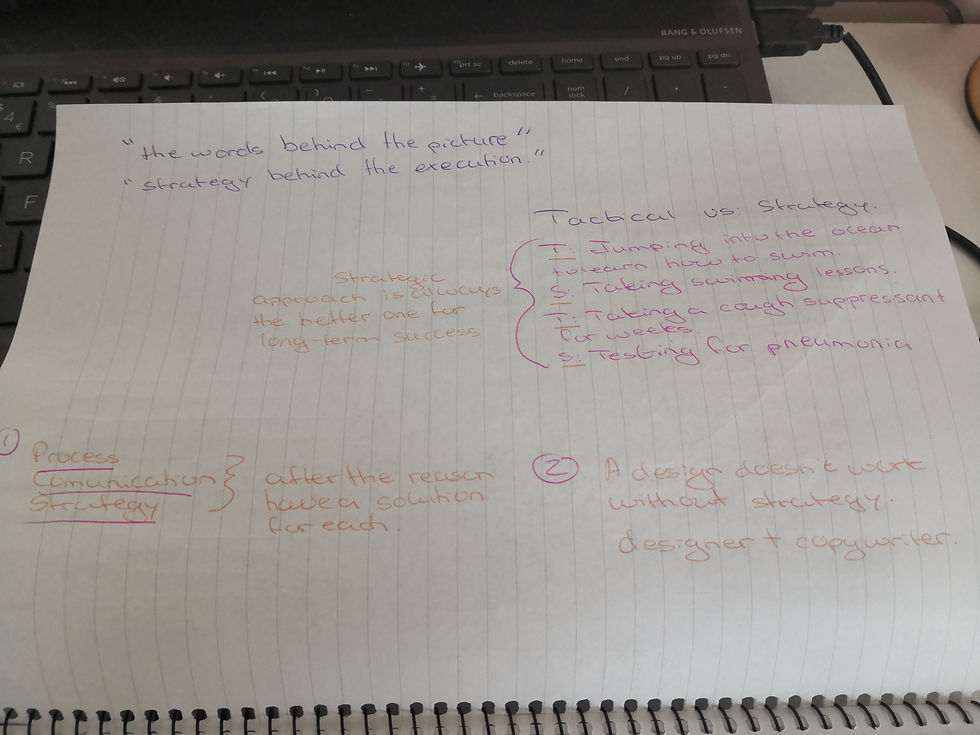 BANG & OLUFSEN
prt sc
delete
home
end
pg up
pg dn
backspace
num
lock
4
€
R
F
"the words behind the picture"
"strategy behind the execution."
Tactical vs. Strategy.
T: Jumping into the ocean
to learn how to swim.
S: Taking swimming lessons.
T: Taking a cough suppressant
for weeks.
S: Testing for pneumonia
Strategic
approach is always
the better one for
long-term success
1
Process
Comunication
Strategy
after the reason
have a solution
for each.
2
A design doesn't work
without strategy.
designer + copywriter.